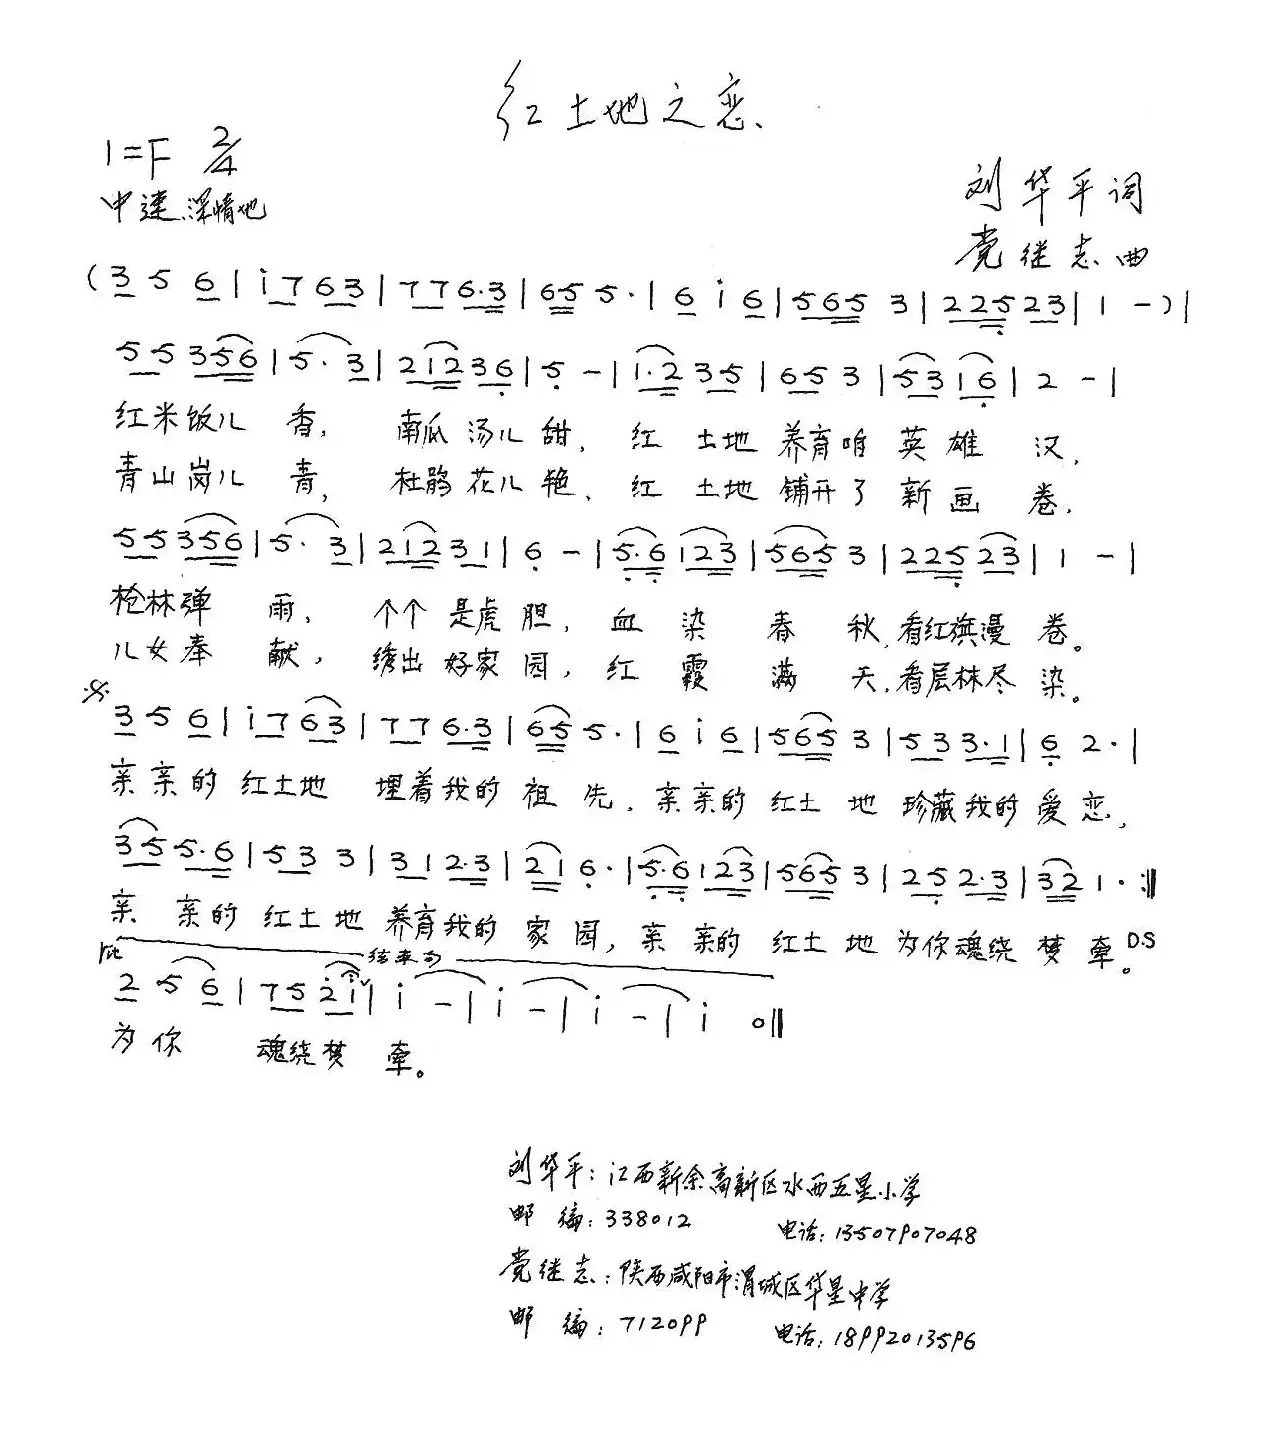 红土地之恋
1=F 2/4
中速 深情地
刘华平词
党继志曲
(3 5 6 | i 7 6 3 | 7 7 6·3 | 6 5 5· | 6 i 6 | 5 6 5 3 | 2 2 5 2 3 | 1 - ) |
5 5 3 5 6 | 5· 3 | 2 1 2 3 6 | 5 - | 1·2 3 5 | 6 5 3 | 5 3 1 6 | 2 - |
红米饭儿 香, 南瓜 汤儿 甜, 红 土地 养育咱 英雄 汉,
青山岗儿 青, 杜鹃 花儿 艳, 红 土地 铺开了 新画 卷,
5 5 3 5 6 | 5· 3 | 2 1 2 3 1 | 6 - | 5·6 1 2 3 | 5 6 5 3 | 2 2 5 2 3 | 1 - |
枪林弹 雨, 个个 是虎 胆, 血 染 春 秋,看红旗漫 卷。
儿女奉 献, 绣出 好家 园, 红 霞 满 天,看层林尽 染。
3 5 6 | i 7 6 3 | 7 7 6·3 | 6 5 5· | 6 i 6 | 5 6 5 3 | 5 3 3·1 | 6 2· |
亲 亲 的 红土地 埋着我的 祖 先, 亲亲的 红土 地 珍藏我的 爱 恋,
3 5 5·6 | 5 3 3 | 3 1 2·3 | 2 1 6· | 5·6 1 2 3 | 5 6 5 3 | 2 5 2·3 | 3 2 1· :‖
亲 亲的 红土地 养育我的 家 园, 亲 亲的 红土 地 为你魂绕 梦 牵。 D.S
结束句
2 5 6 | 7 5 2 i | i - | i - | i - | i 0 ‖
为 你 魂绕 梦 牵。
刘华平: 江西新余高新区水西五星小学
邮 编: 338012 电话: 13507907048
党继志: 陕西咸阳市渭城区华星中学
邮 编: 712099 电话: 18992013596